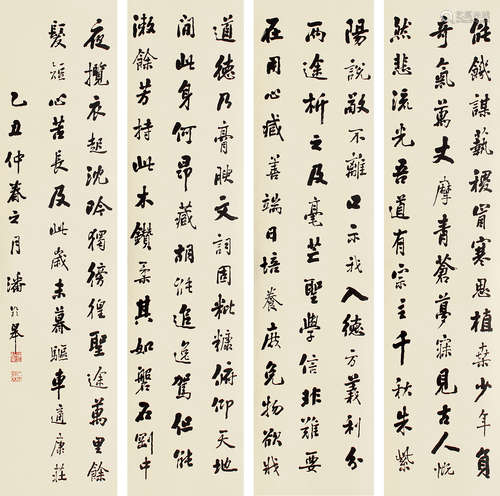 能鐵謀藝稷胃寒思植桑少年負
奇氣萬丈摩青蒼夢寐見古人慨
然悲流光吾道有宗主千秋朱紫
陽說敬不離口示我入德方義利分
兩途析之及毫芒聖學信非難要
在用心臧善端日培養庶免物欲戕
道德乃膏腴文詞固粃糠俯仰天地
間此身何昂藏胡能追逸駕但能
漱餘芳持此木鑽柔其如磐石剛中
夜攬衣起沈吟獨徬徨聖途萬里餘
髮短心苦長及此歲未暮驅車適康莊
乙丑仲春之月潘